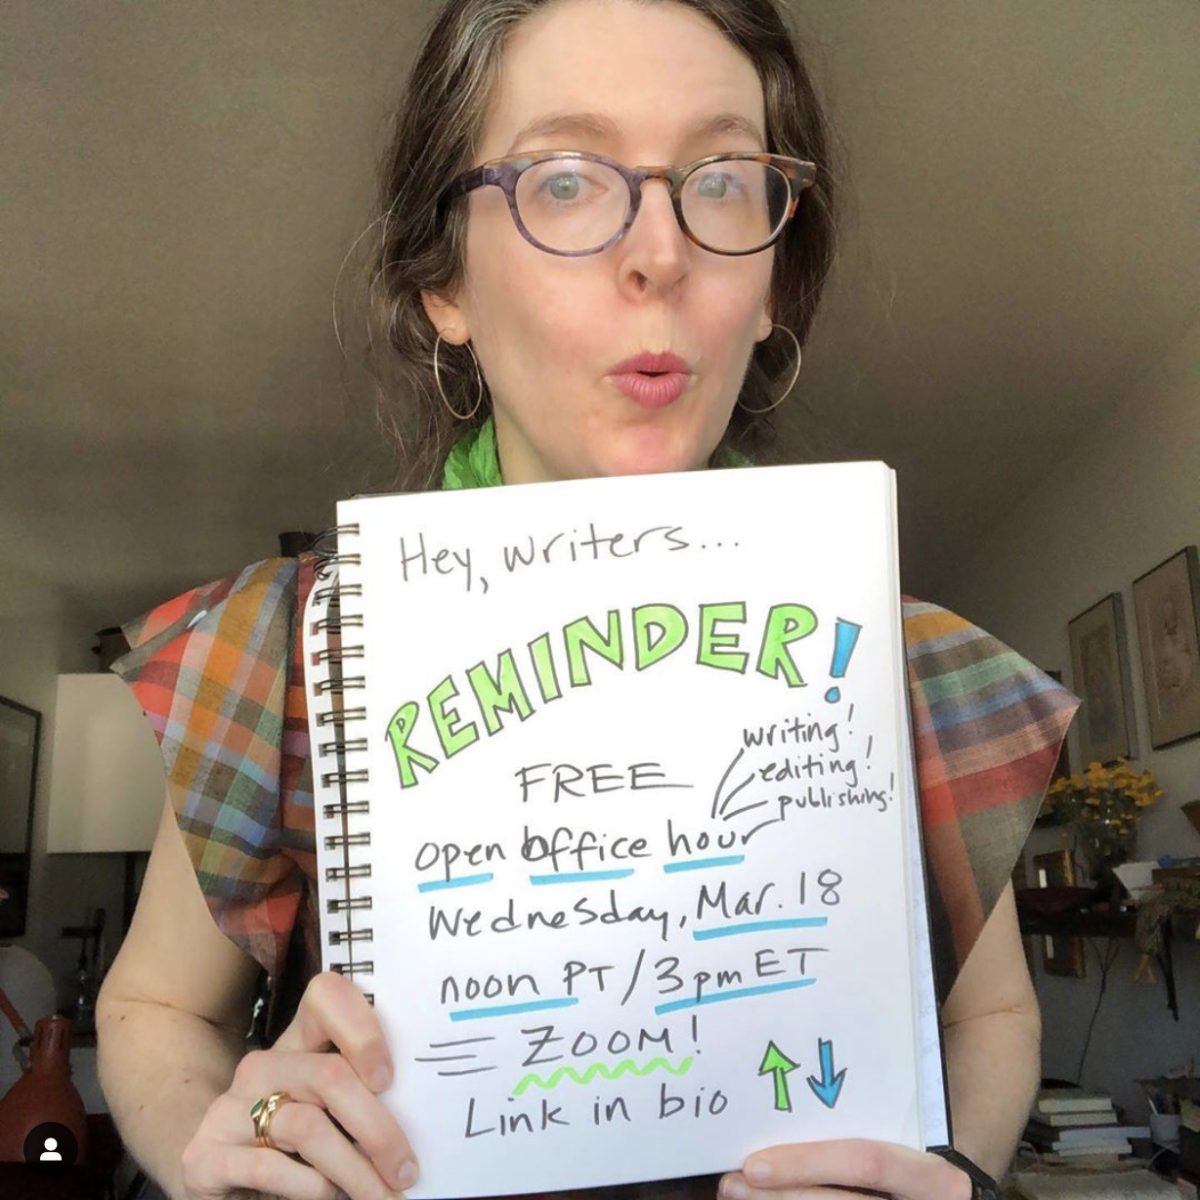 Hey, writers...
REMINDER!
FREE
writing!
editing!
publishing!
open office hour
Wednesday, Mar. 18
noon PT / 3pm ET
ZOOM!
Link in bio